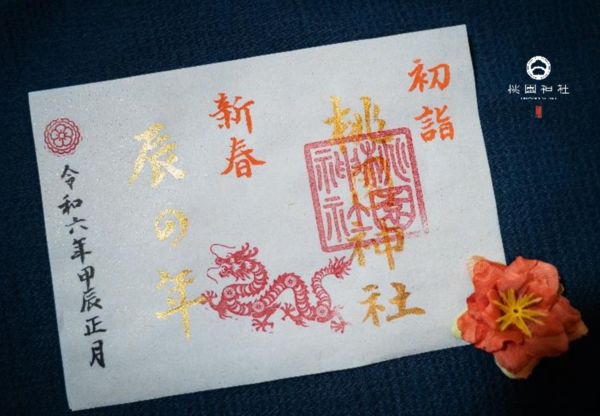 初詣
桃園神社
桃園神社
新春
辰の年
令和六年甲辰正月
桃園神社